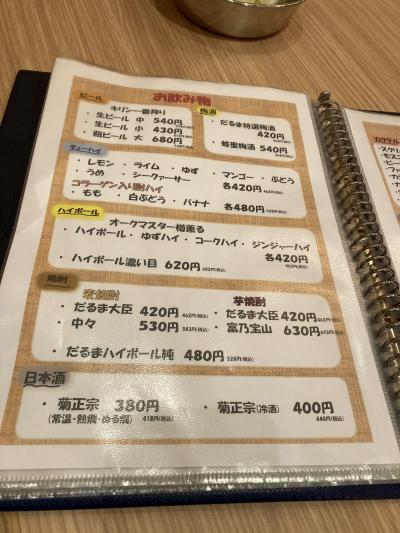 お飲み物
ビール
キリン一番搾り
・生ビール 中 540円
・生ビール 小 430円
・瓶ビール 大 680円
梅酒
・だるま特選梅酒
420円
・蜂蜜梅酒 540円
チューハイ
・レモン ・ライム ・ゆず ・マンゴー ・ぶどう
・うめ ・シークァーサー 各420円
コラーゲン入り酎ハイ
・もも ・白ぶどう ・バナナ 各480円
ハイボール
オークマスター樽薫る
・ハイボール ・ゆずハイ ・コークハイ ・ジンジャーハイ
各420円
・ハイボール濃い目 620円
焼酎
麦焼酎
・だるま大臣 420円 462円(税込)
・中々 530円 583円(税込)
芋焼酎
・だるま大臣 420円
・富乃宝山 630円
・だるまハイボール純 480円 528円(税込)
日本酒
・菊正宗 380円
(常温・熱燗・ぬる燗) 418円(税込)
・菊正宗(冷酒) 400円
440円(税込)
カクテル